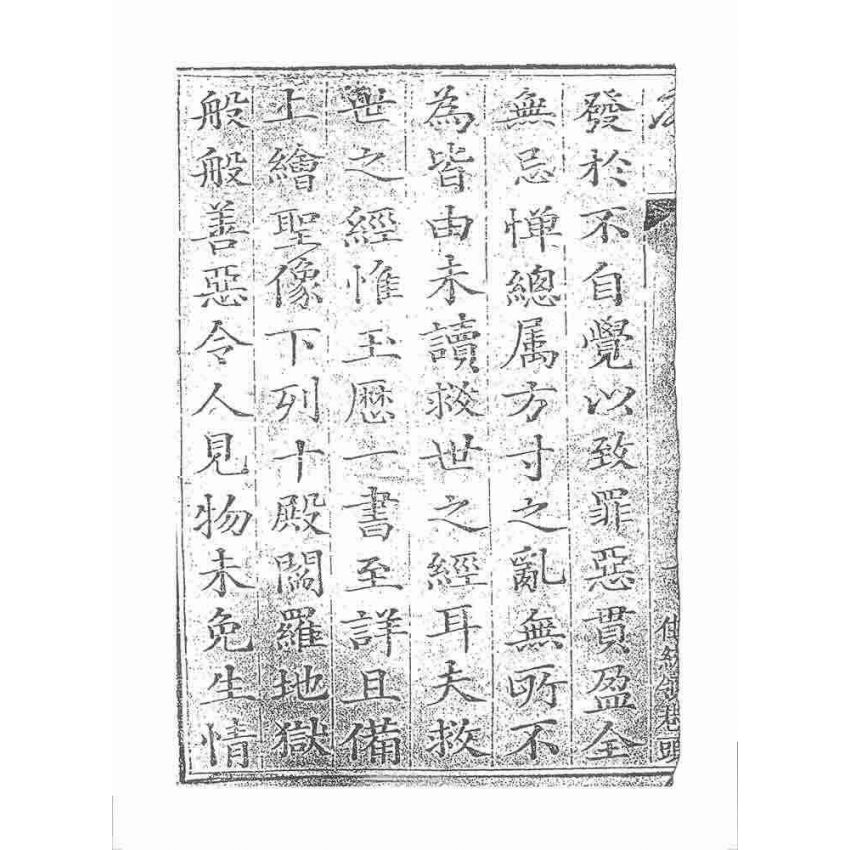 發於不自覺以致罪惡貫盈全
無忌惮總属方寸之亂無所不
為皆由未讀救世之經耳夫救
世之經惟玉歷一書至詳且備
上繪聖像下列十殿閻羅地獄
般般善惡令人見物未免生情